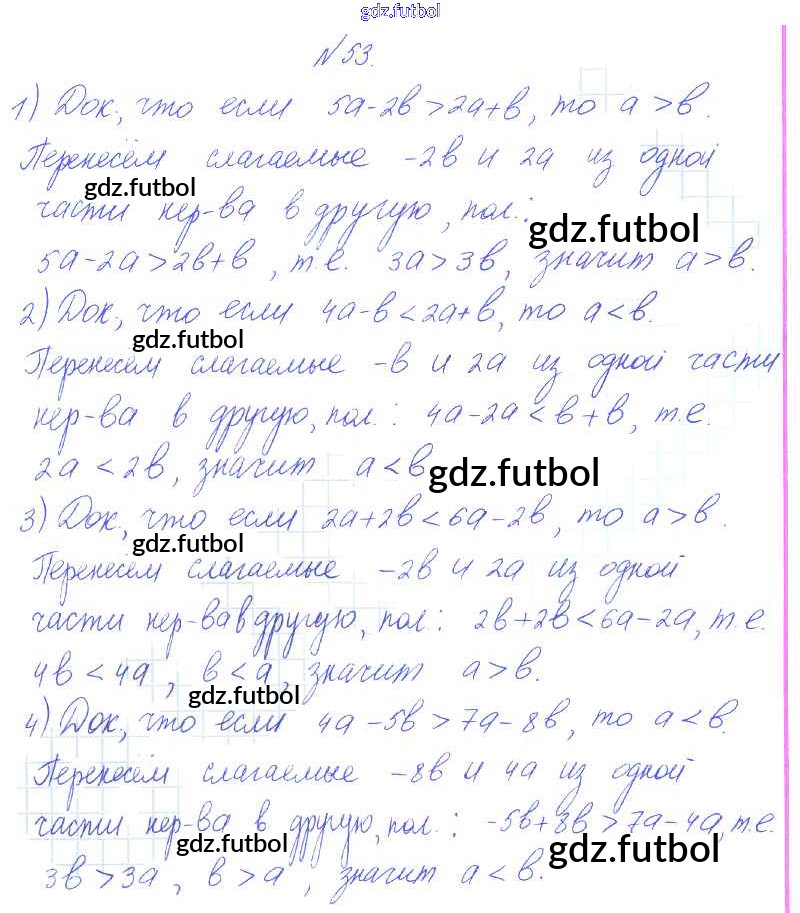 gdz.futbol
№53.
1) Док, что если 5а-2в>2а+в, то а>в.
Перенесём слагаемые -2в и 2а из одной
gdz.futbol
части нер-ва в другую, пол.:
gdz.futbol
5а-2а>2в+в, т.е. 3а>3в, значит а>в.
2) Док., что если 4а-в<2а+в, то а<в.
gdz.futbol
Перенесём слагаемые -в и 2а из одной части
нер-ва в другую, пол.: 4а-2а<в+в, т.е.
2а<2в, значит а<в
gdz.futbol
3) Док, что если 2а+2в<6а-2в, то а>в.
gdz.futbol
Перенесём слагаемые -2в и 2а из одной
части нер-ва в другую, пол.: 2в+2в<6а-2а, т.е.
4в<4а, в<а, значит а>в.
gdz.futbol
4) Док, что если 4а-5в>7а-8в, то а<в.
Перенесём слагаемые -8в и 4а из одной
части нер-ва в другую, пол.: -5в+8в>7а-4а, т.е.
gdz.futbol
gdz.futbol
3в>3а, в>а, значит а<в.